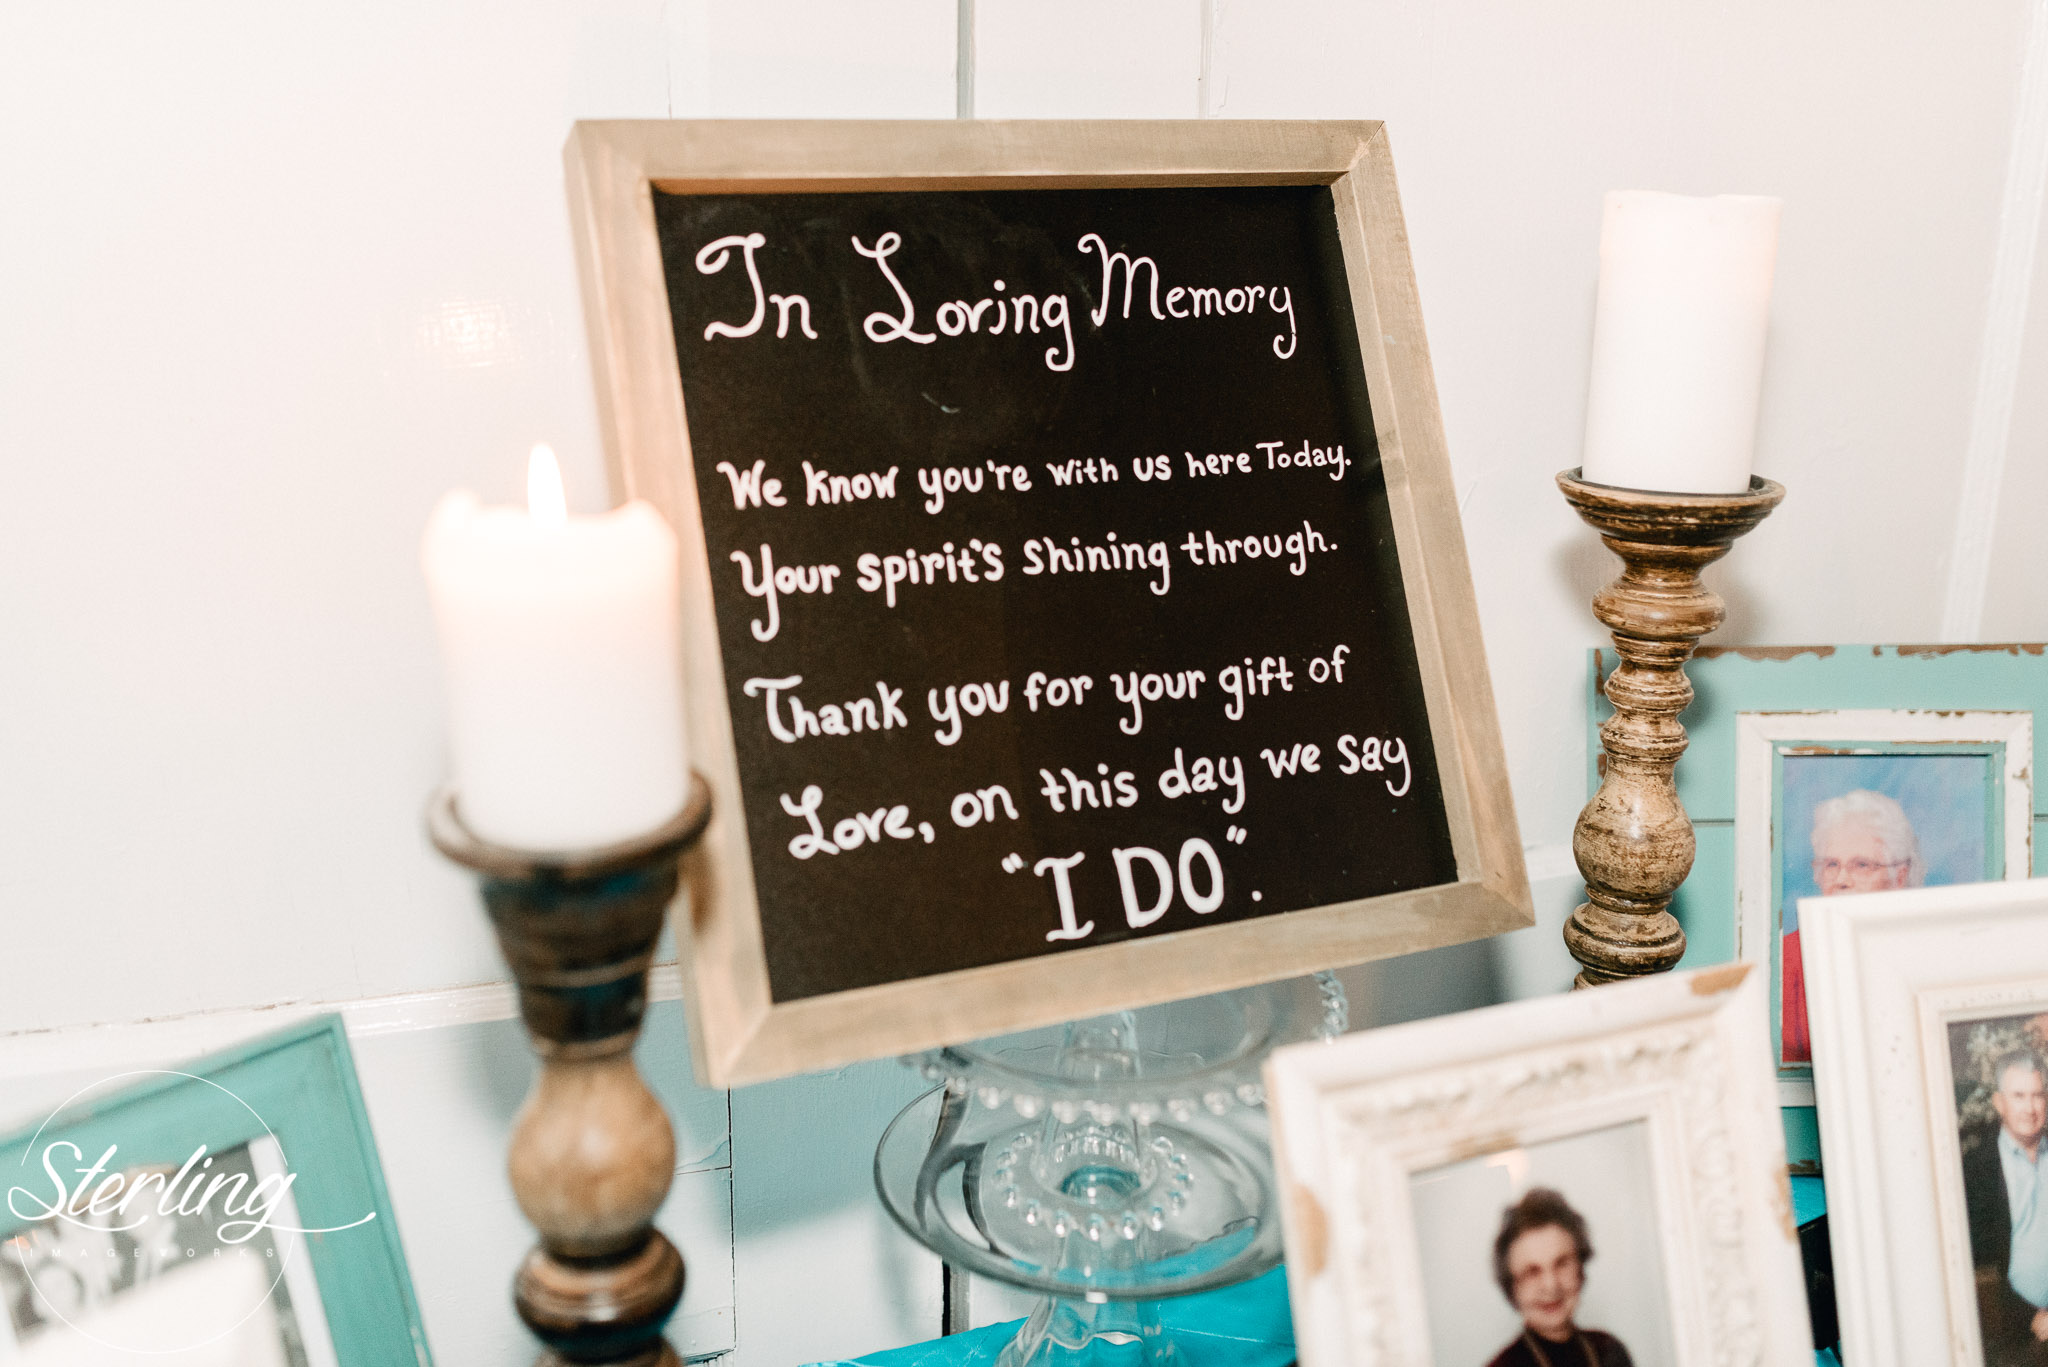 In Loving Memory
We know you're with us here Today.
Your spirit's shining through.
Thank you for your gift of
Love, on this day we say
"I DO".
Sterling
IMAGEWORKS